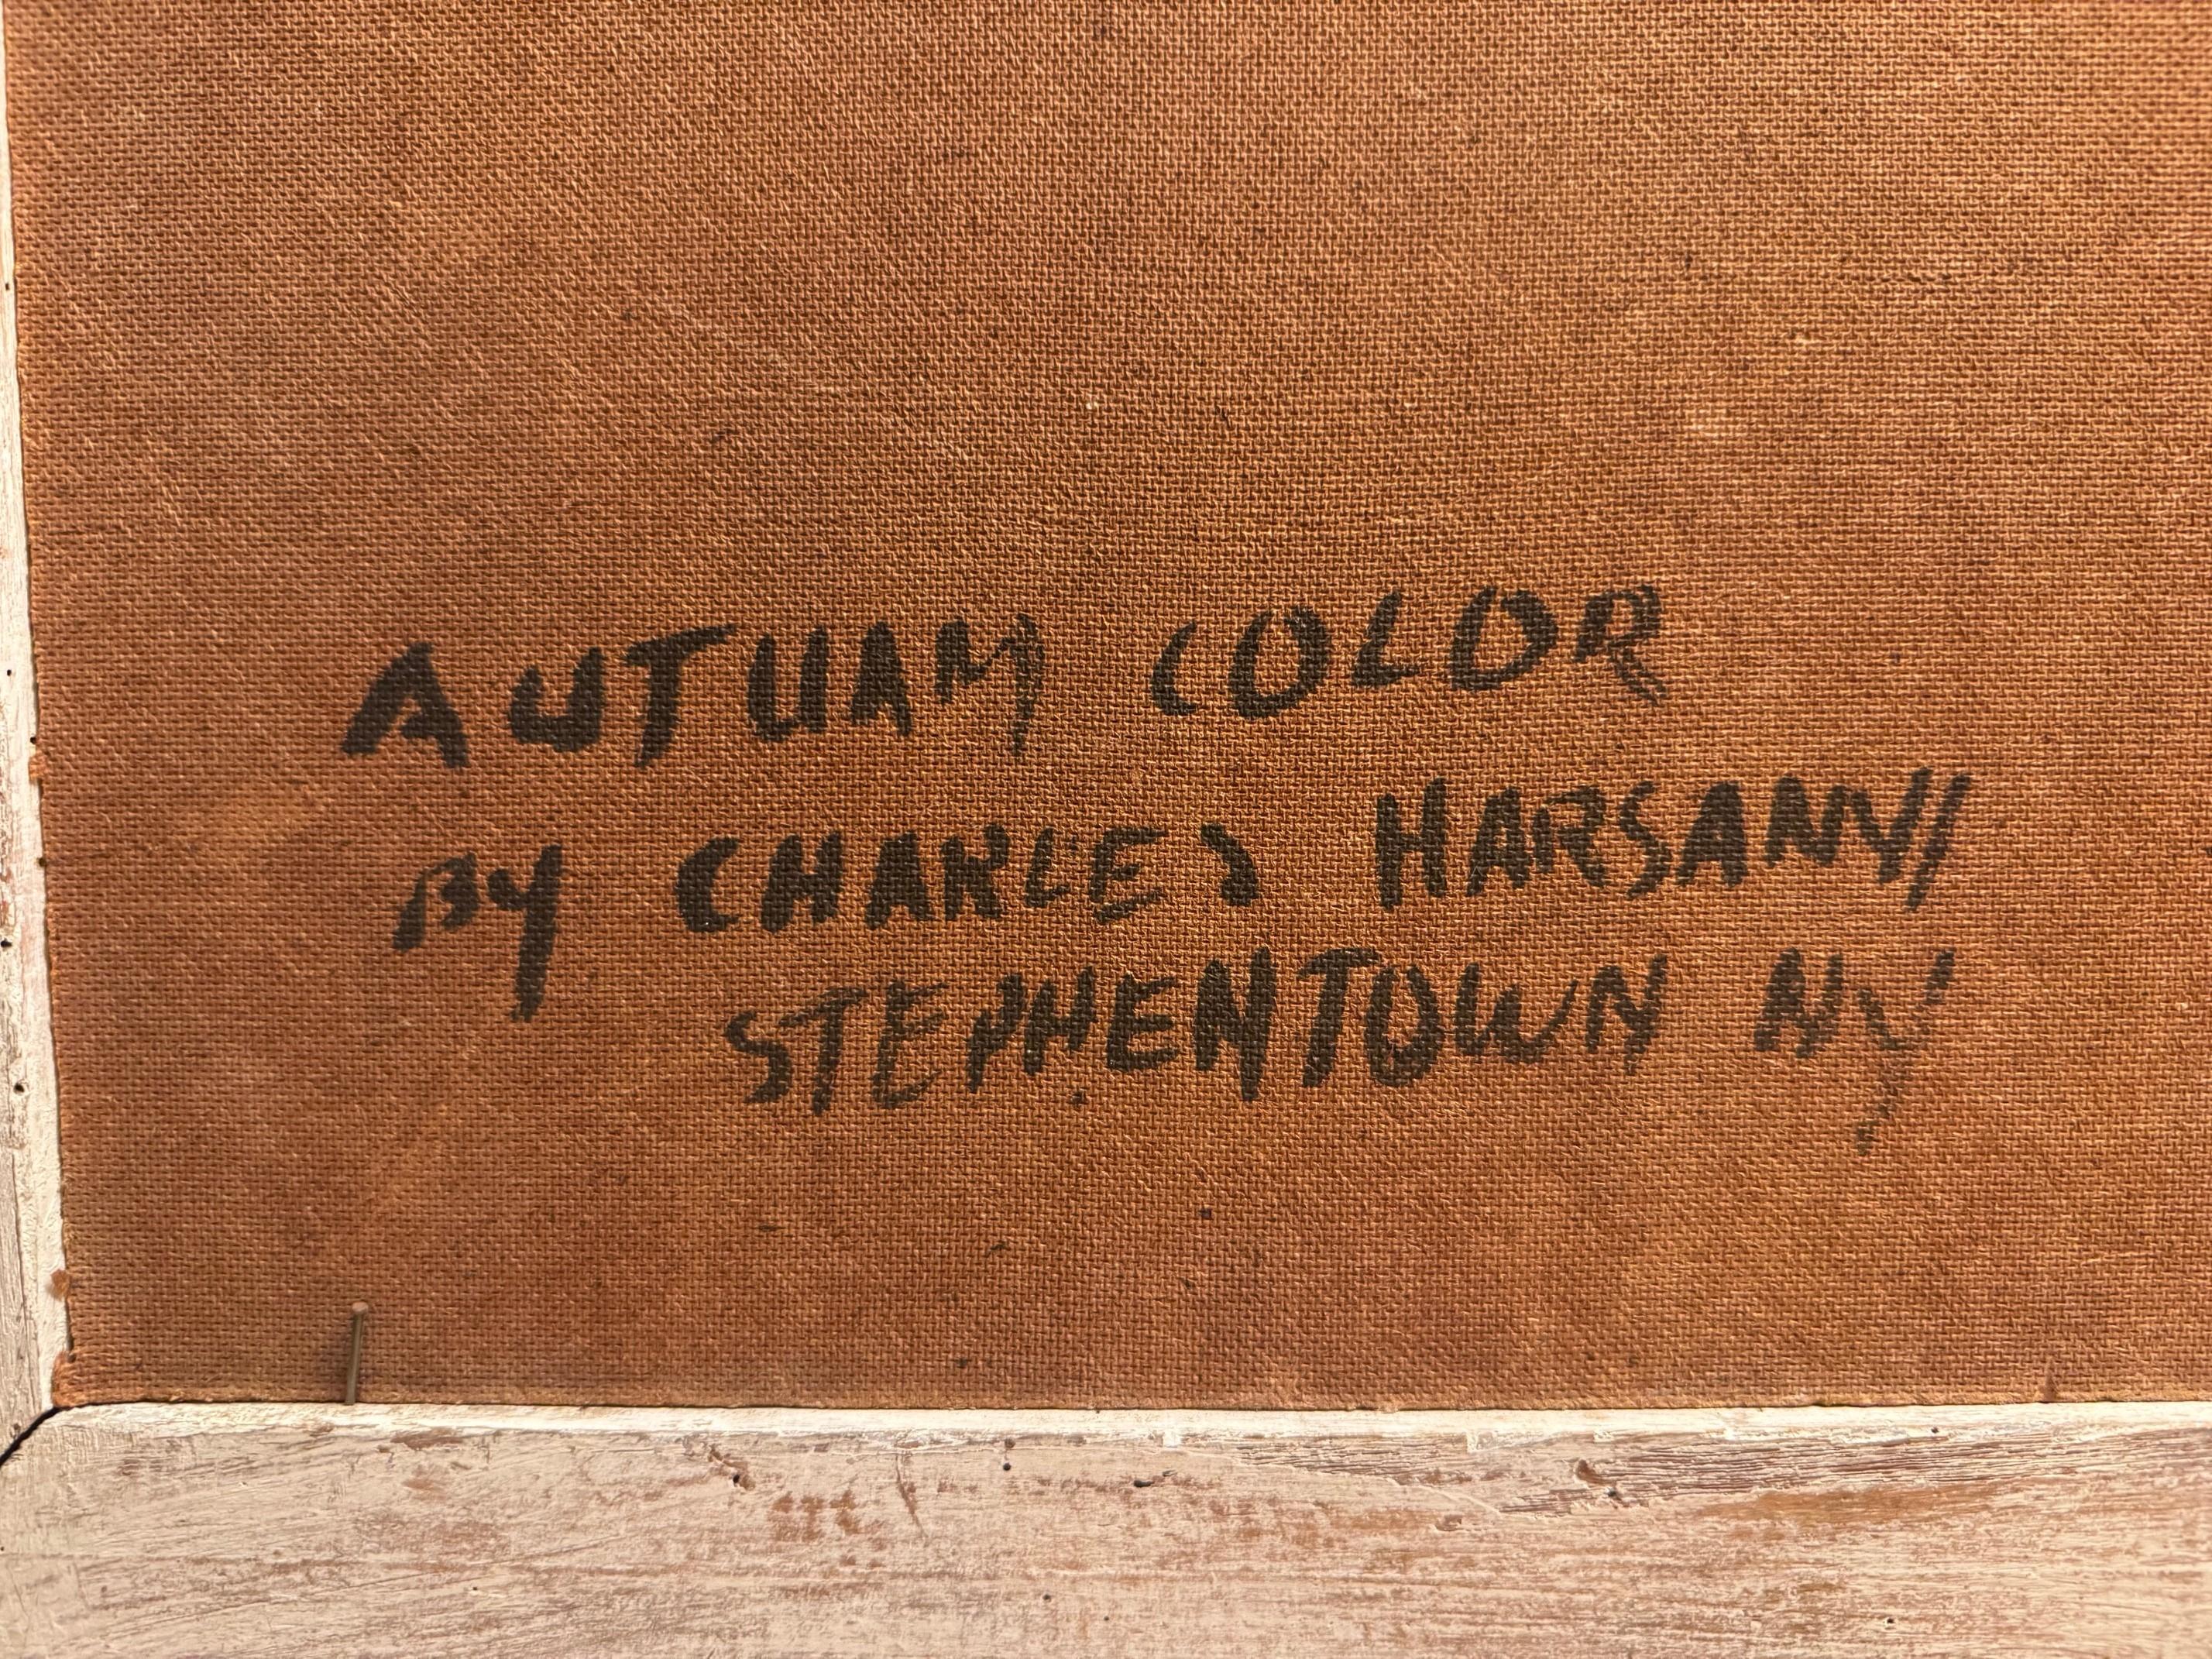 AUTUAM COLOR
BY CHARLES HARSANYI
STEPHENTOWN NY